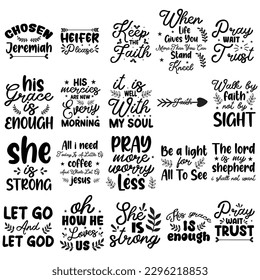 CHOSEN
Jeremiah
HEIFER
Please
Keep
THE
Faith
When
Life
Gives You
More Than You Can
Stand
Kneel
Pray
WAIT
Trust
his
Grace
is
ENOUGH
HIS
MERCIES
ARE NEW
EVERY
MORNING
it is
WELL
With
MY SOUL
Faith
Walk by
FAITH
not
by
SIGHT
she
is
STRONG
All i need
Today Is A Little Of
coffee
and Whole Lot Of
jesus
PRAY
more
worry
Less
Be a light
FOR
All To See
The lord
is my
shepherd
i shall not want
LET GO
And
LET GOD
oh
HOW HE
Loves
US
She
IS
Strong
His grace
is
enough
Pray
WAIT
TRUST
shutterstock
IMAGE ID: 2296218853
www.shutterstock.com